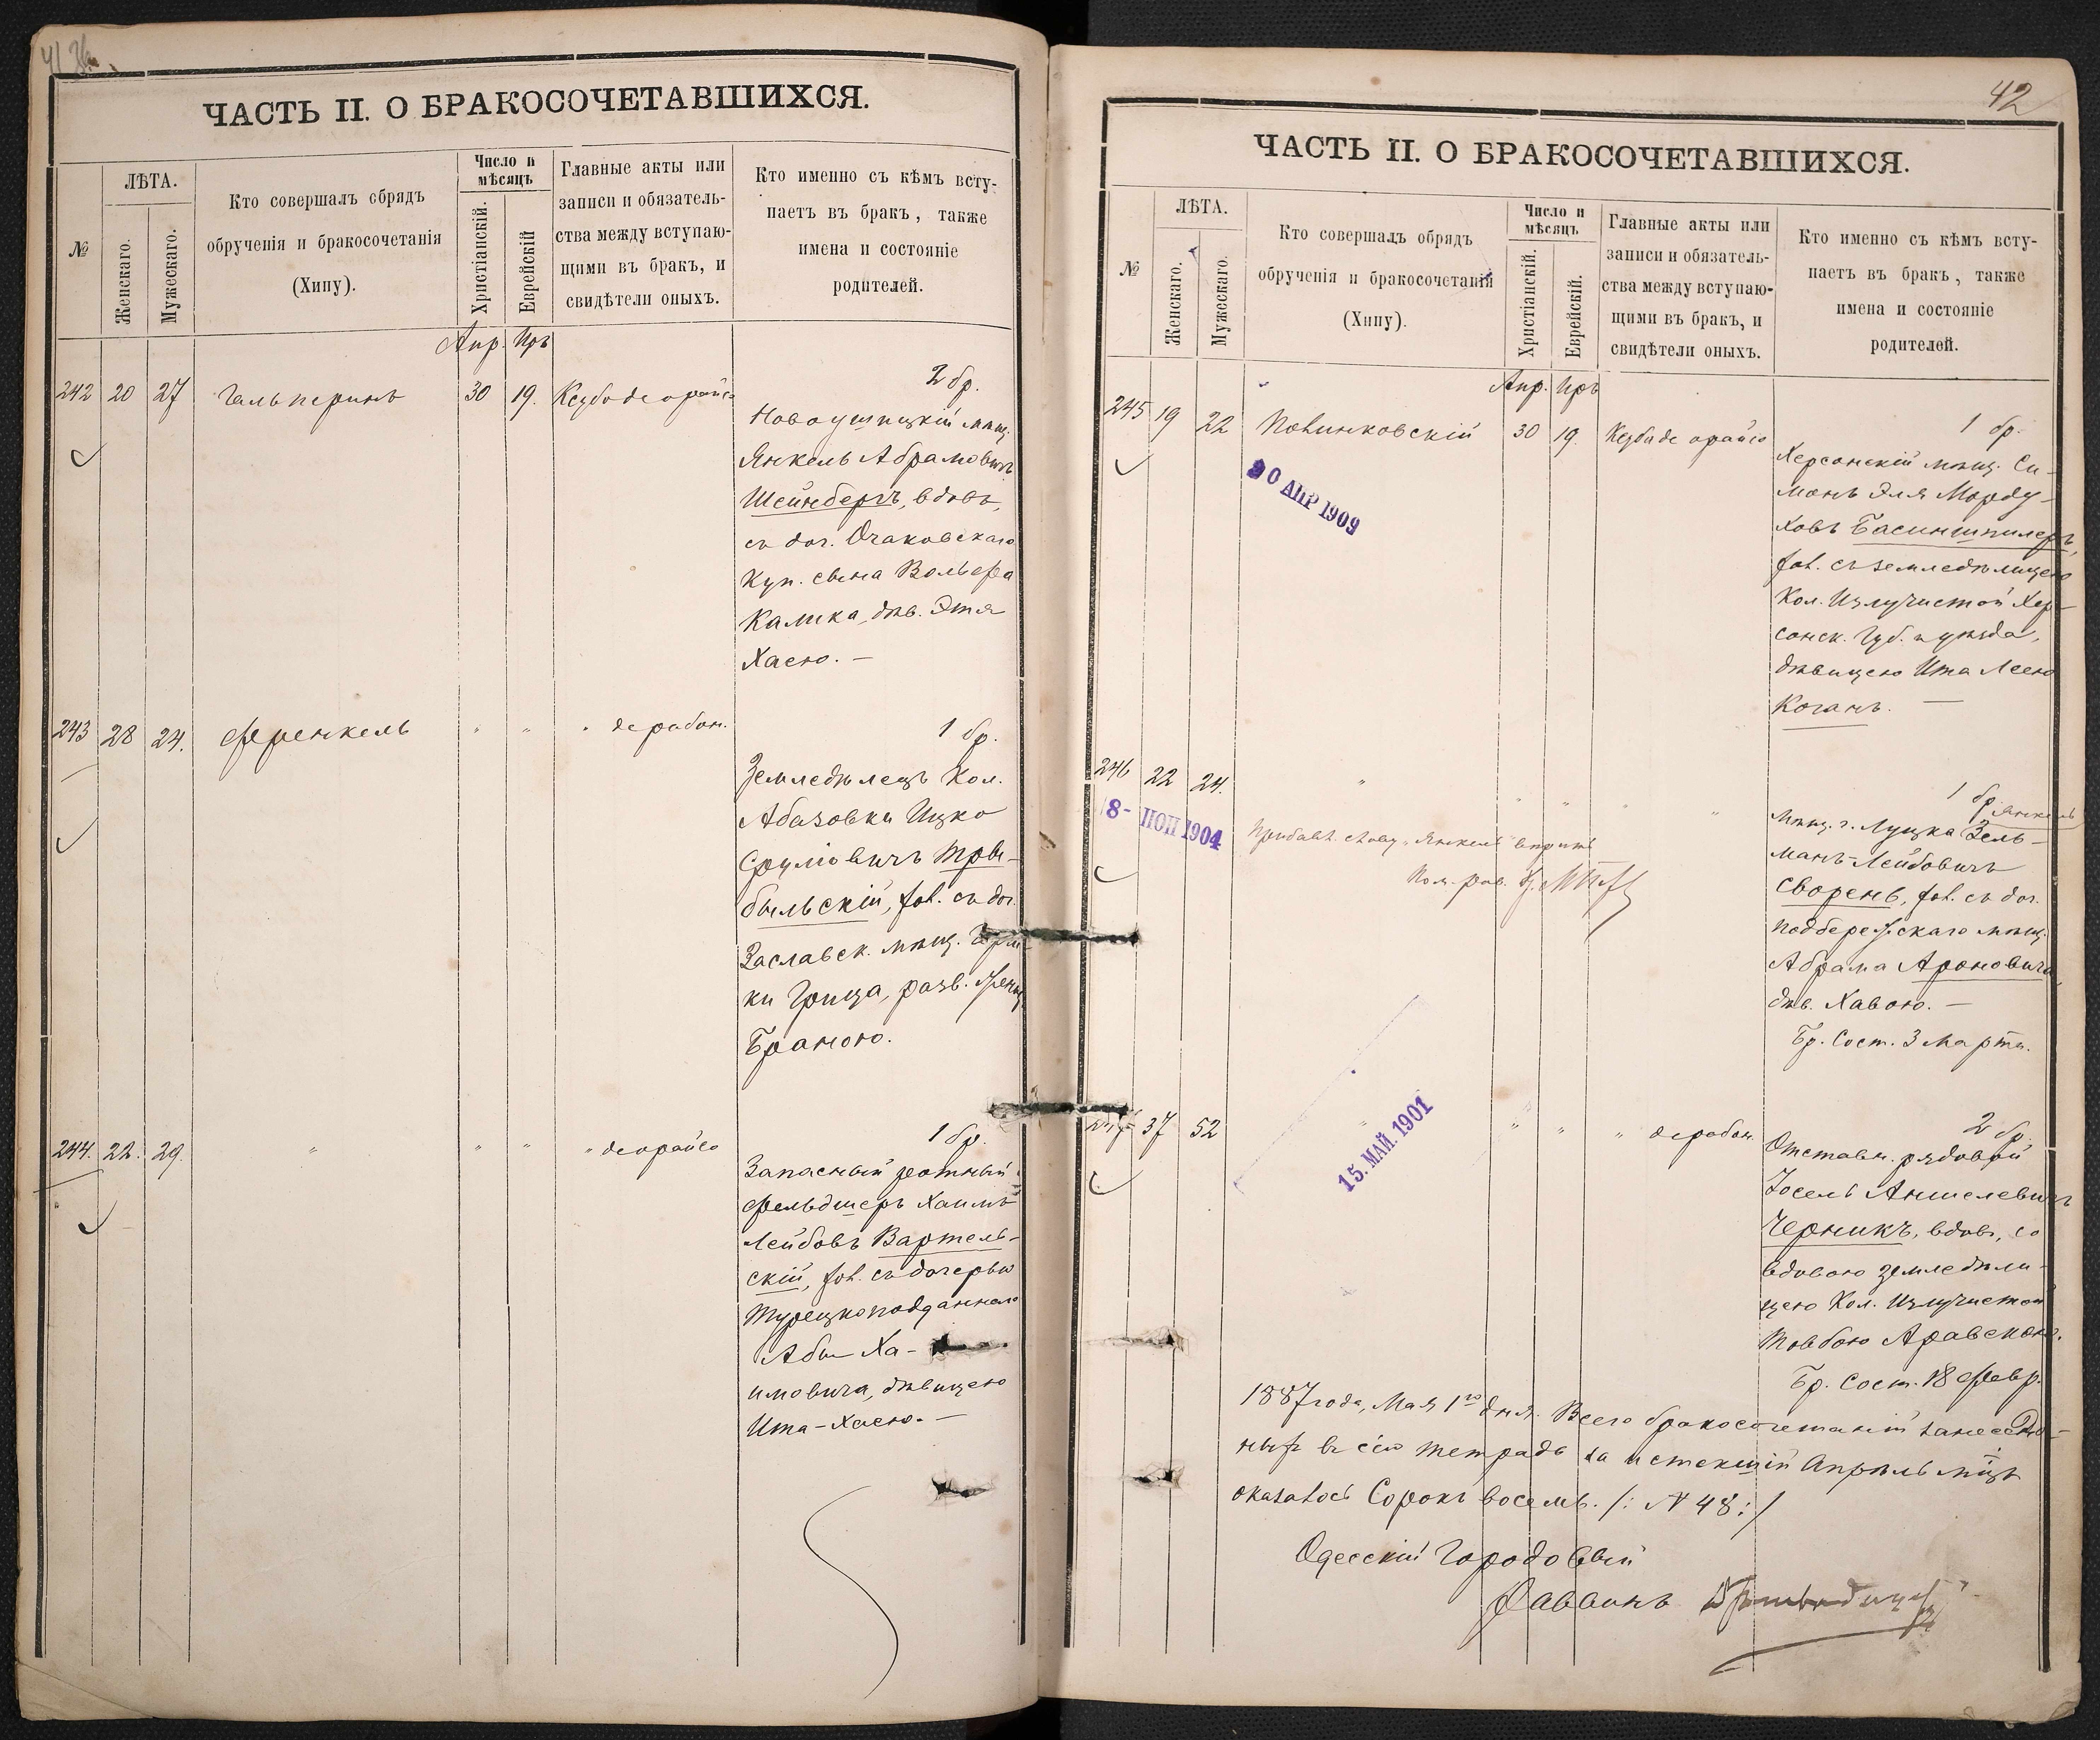 ЧАСТЬ II. О БРАКОСОЧЕТАВШИХСЯ.
№
ЛѢТА.
Женскаго.
Мужескаго.
Кто совершалъ обрядъ
обрученія и бракосочетанія
(Хипу).
Число и
мѣсяцъ
Христіанскій.
Еврейскій
Главные акты или
записи и обязатель-
ства между вступаю-
щими въ бракъ, и
свидѣтели оныхъ.
Кто именно съ кѣмъ всту-
паетъ въ бракъ, также
имена и состояніе
родителей.
Апр. Иръ
242 20 27 Гальперинъ 30 19. Кезубе деорайсо
2 бр.
Новоушицкій мѣщ.
Янкель Абрамовичъ
Шейнбергъ, вдовъ,
съ доч. Очаковскаго
куп. сына Вольфа
Калика, дѣв. Этя
Хаею. —
243 28 24. Френкель " " " дерабон.
1 бр.
Земледѣлецъ кол.
Абазовки Ицко
Сруліовичъ Тры-
быльскій, хол. съ доч.
Заславск. мѣщ.
ки Грица, разв.
Браною.
244. 22. 29. " " " " деорайсо
1 бр.
Запасный ротный
фельдшеръ Хаимъ
Лейбовъ Вартель-
скій, хол. съ дочерью
турецкоподданнаго
Абы Ха-
имовича, дѣвицею
Ита-Хаею. —
42
ЧАСТЬ II. О БРАКОСОЧЕТАВШИХСЯ.
№
ЛѢТА.
Женскаго.
Мужескаго.
Кто совершалъ обрядъ
обрученія и бракосочетанія
(Хипу).
Число и
мѣсяцъ
Христіанскій.
Еврейскій.
Главные акты или
записи и обязатель-
ства между вступаю-
щими въ бракъ, и
свидѣтели оныхъ.
Кто именно съ кѣмъ всту-
паетъ въ бракъ, также
имена и состояніе
родителей.
Апр. Иръ
245 19 22 Полинковскій 30 19. Кезубе деорайсо
1 бр.
0 АПР 1909
Херсонскій мѣщ. Си-
монъ Эля Морду-
ховъ Басиншпилеръ,
хол. съ земледѣлицею
кол. Излучистой Хер-
сонск. губ. и уѣзда,
дѣвицею Ита Леею
Коганъ. —
246 22 24. " " " " "
1 бр.
8- ІЮП 1904
Прибавл. слову „Янкель" вѣрить
Пом. рав.
Янкель
Мѣщ. г. Луцка Зель-
манъ-Лейбовичъ
Сворень, хол. съ доч.
Подберезскаго мѣщ.
Абрама Ароновича,
дѣв. Хавою. —
Бр. Сост. 3 Марта.
247 37 52 " " " " дерабон.
2 бр.
15. МАЙ. 1901
Отставн. рядовой
Іосель Аншелевичъ
Черникъ, вдов., со
вдовою земледѣли-
цею кол. Излучистой
Товбою Аравскою.
Бр. Сост. 18 Февр.
1887 года, Мая 1го дня. Всего бракосочетаній занесен-
ныхъ въ сію тетрадь за истекшій Апрѣль мѣцъ
оказалось Сорокъ восемь. /: № 48 :/
Одесскій Городовый
Раввинъ